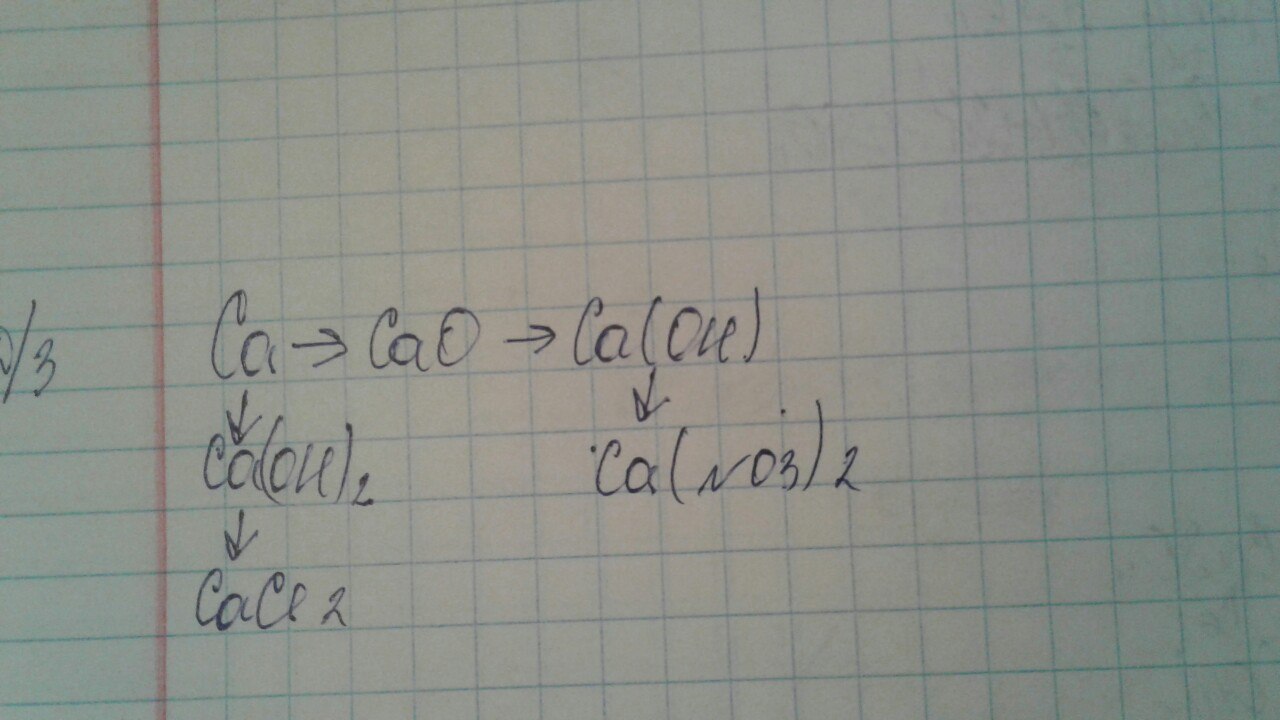 Д/З Ca → CaO → Ca(OH)
↓ ↓
Ca(OH)2 Ca(NO3)2
↓
CaCl2